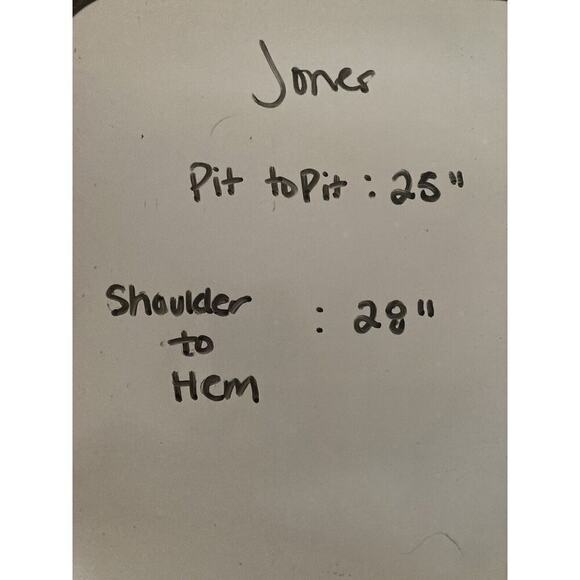 Jones
Pit to Pit : 25"
Shoulder : 28"
to
Hem